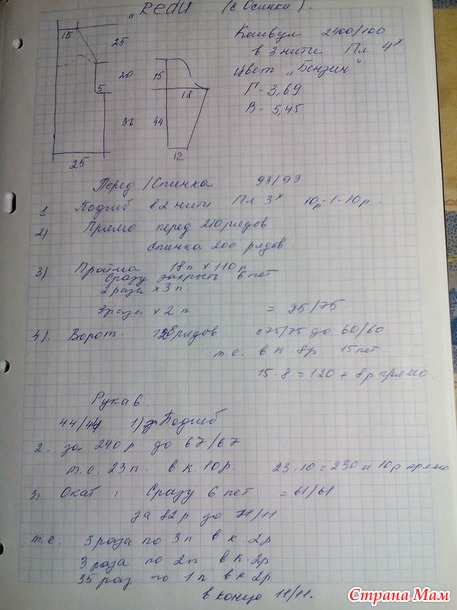 „Redu (с Осинки).
15
25
20
5
36
25
15
18
44
12
2400/100
в 3 нити Пл 4х
Цвет „Бензин"
Г - 3,69
В - 5,45
Перед /Спинка 93/93
1 Подгиб в 2 нити Пл 3х 10р-1-10р
2) Прямо перед 210 рядов
спинка 200 рядов
3) Пройма 18п х 110п
сразу закрыть 6 пет
2 раза х 3 п
3 раза х 2 п = 75/75
4) Ворот. 128 рядов с 75/75 до 60/60
т.е. в к 8р 15 пет.
15·8 = 120 + 8р прямо.
Рукав
44/44 1) Подгиб
2. за 240 р до 67/67
т.е. 23п. в к 10р. 23·10 = 230 и 10р прямо
3. Окат: Сразу 6 пет = 61/61
за 82р до 11/11
т.е. 3 раза по 3п в к 2р
3 раза по 2п в к 2р
35 раз по 1п в к 2р
в конце 11/11.
Страна Мам